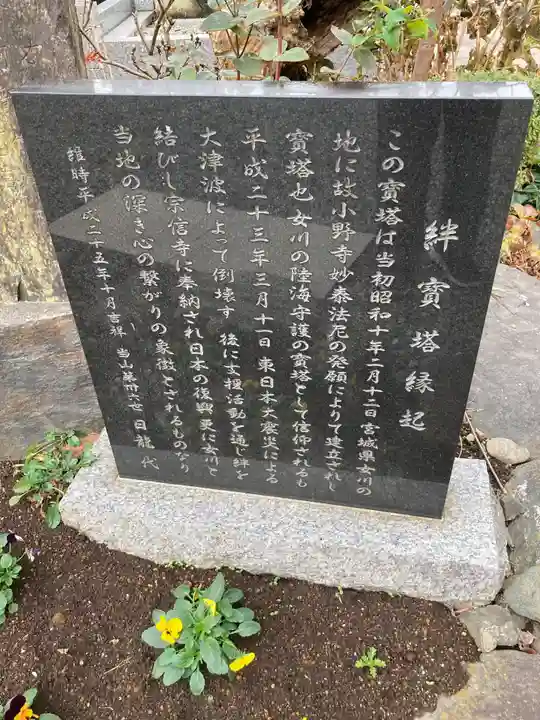 絆寳塔縁起
この寳塔は当初昭和十年二月十二日宮城県女川の
地に故小野寺妙泰法尼の発願によりて建立されし
寳塔也 女川の陸海守護の寳塔として信仰されるも
平成二十三年三月十一日 東日本大震災による
大津波によって倒壊す 後に支援活動を通じ絆を
結びし宗信寺に奉納され日本の復興更に女川と
当地の深き心の繋がりの象徴とされるものなり
維時平成二十五年十月吉祥 当山第卅六世 日龍 代